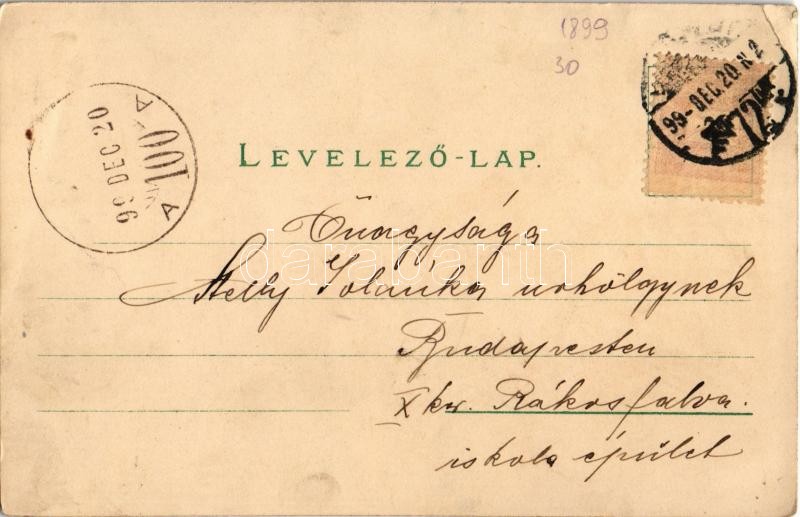 1899
30
99-DEC.20.N2
72
A
100
99 DEC 20
A
LEVELEZŐ-LAP.
Őnagysága
Jolánka urhölgynek
Budapesten
X ker. Rákosfalva.
iskola épület
darabanth